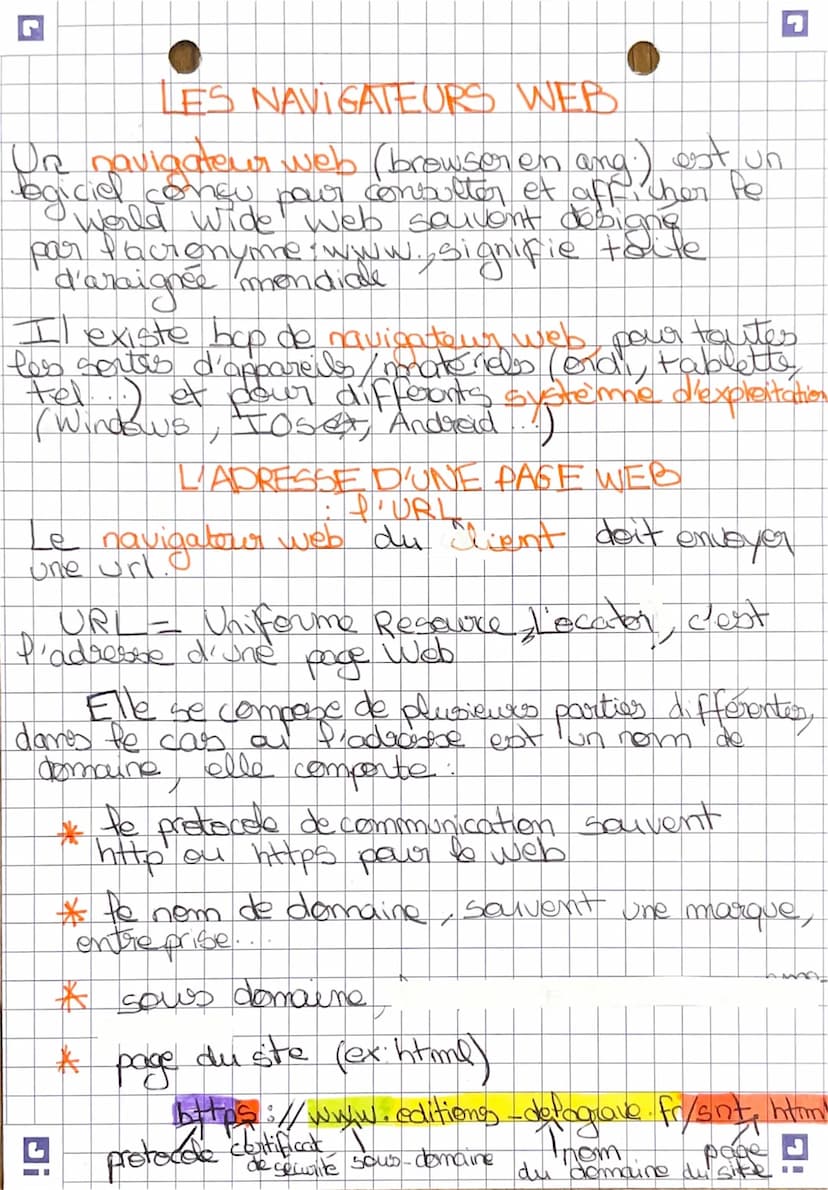 LES NAVIGATEURS WEB
Un navigateur web (browser en ang.) est un
logiciel conçu pour consulter et afficher le
World Wide Web souvent désigné
par l'acronyme : www., signifie toile
d'araignée mondiale
Il existe bcp de navigateur web, pour toutes
les sortes d'appareils/matériels (ordi, tablette,
tel...) et pour différents système d'exploitation
(Windows, IOS, Android...)
L'ADRESSE D'UNE PAGE WEB
: l'URL
Le navigateur web du client doit envoyer
une url.
URL = Uniforme Resource Locator, c'est
l'adresse d'une page Web
Elle se compose de plusieurs parties différentes,
dans le cas où l'adresse est un nom de
domaine, elle comporte :
* le protocole de communication souvent
http ou https pour le web
* le nom de domaine, souvent une marque,
entreprise...
* sous domaine
* page du site (ex: html)
https://www.editions-delagrave.fr/snt.html
protocole certificat de sécurité sous-domaine nom du domaine page du site